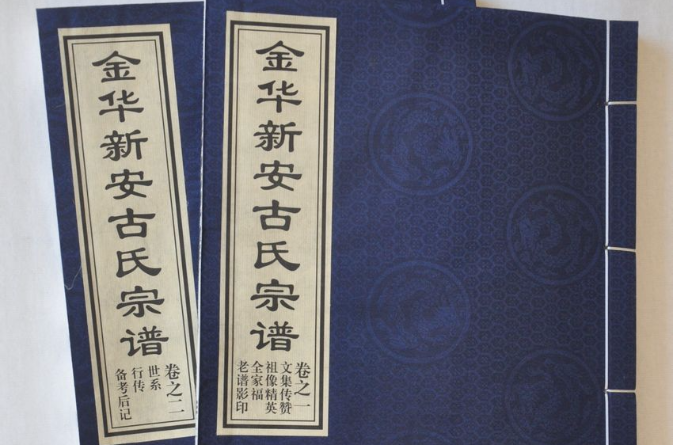 金华新安古氏宗谱
卷之一
文集传赞
祖像精英
全家福
老谱影印
金华新安古氏宗谱
卷之二
世系
行传
备考后记